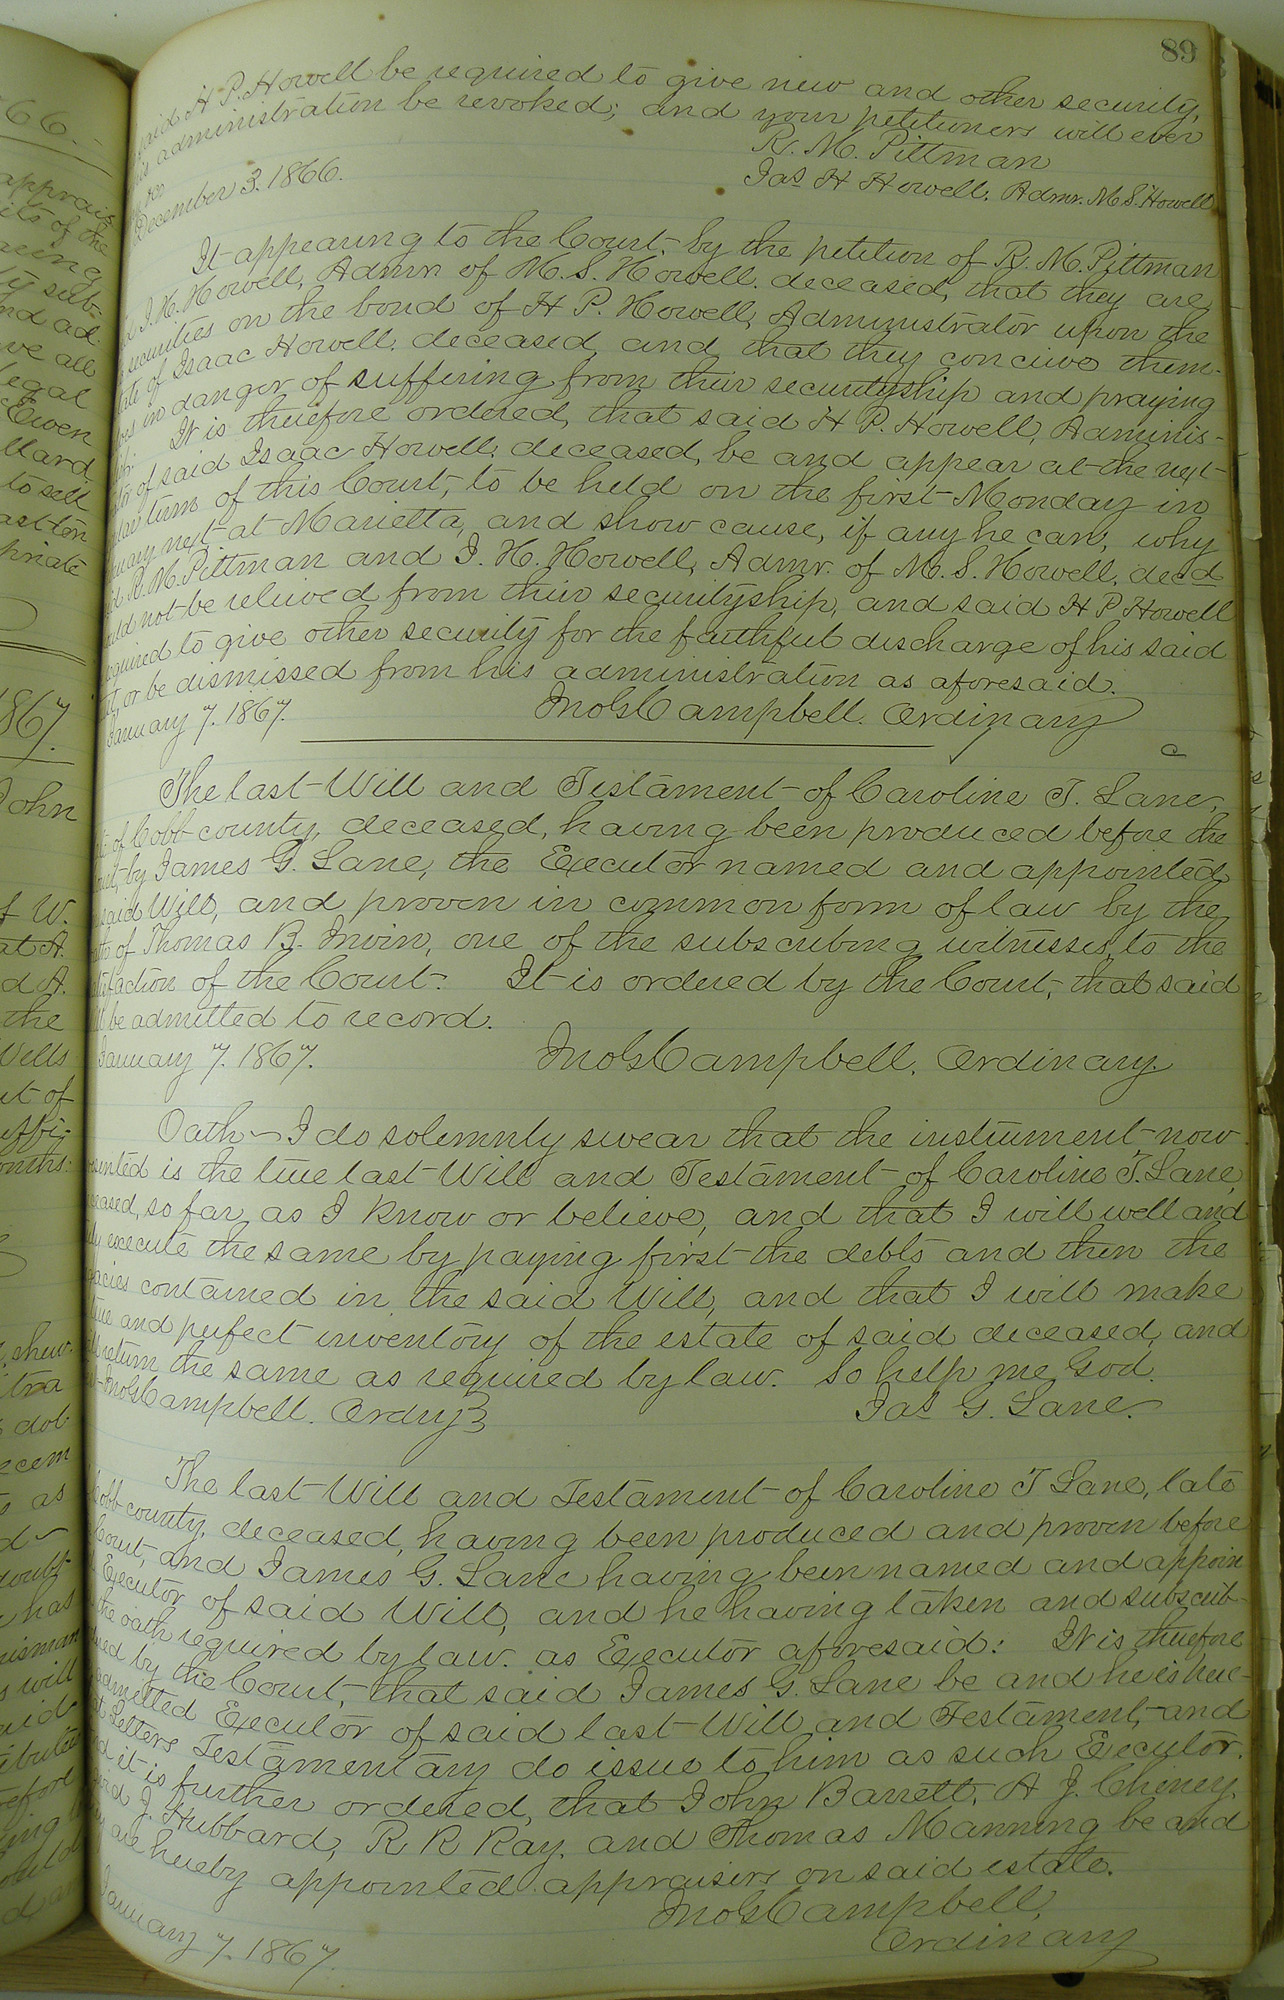 89
said H. P. Howell be required to give new and other security,
his administration be revoked; and your petitioners will ever
R. M. Pittman
December 3. 1866.
Jas H Howell, Admr. M. S. Howell
It appearing to the Court, by the petition of R. M. Pittman
J. H. Howell, Admr of M. S. Howell, deceased, that they are
securities on the bond of H. P. Howell, Administrator upon the
of Isaac Howell, deceased, and that they conceive them-
in danger of suffering from their securityship and praying
It is therefore ordered, that said H. P. Howell, Adminis-
of said Isaac Howell, deceased, be and appear at the next
term of this Court, to be held on the first Monday in
next at Marietta, and show cause, if any he can, why
R. M. Pittman and J. H. Howell, Admr. of M. S. Howell, decd
not be relieved from their securityship, and said H P Howell
required to give other security for the faithful discharge of his said
or be dismissed from his administration as aforesaid.
January 7. 1867.
Jno G Campbell. Ordinary
The last Will and Testament of Caroline T. Lane,
of Cobb county, deceased, having been produced before the
by James G. Lane, the Executor named and appointed
said Will, and proven in common form of law by the
of Thomas B. Irwin, one of the subscribing witnesses, to the
of the Court. It is ordered by the Court, that said
be admitted to record.
January 7. 1867.
Jno G Campbell. Ordinary.
Oath – I do solemnly swear that the instrument now
is the true last Will and Testament of Caroline T. Lane,
so far as I know or believe, and that I will well and
execute the same by paying first the debts and then the
contained in the said Will, and that I will make
true and perfect inventory of the estate of said deceased, and
return the same as required by law. So help me God.
Jno G Campbell. Ordny
Jas G. Lane.
The last Will and Testament of Caroline T Lane, late
Cobb county, deceased, having been produced and proven before
Court, and James G. Lane having been named and appoin
Executor of said Will, and he having taken and subscrib-
the oath required by law. as Executor aforesaid: It is therefore
by the Court, that said James G. Lane be and he is here-
admitted Executor of said last Will and Testament, and
Letters Testamentary do issue to him as such Executor.
it is further ordered, that John Barrett, A J. Cheney,
J. Hubbard, R R Ray, and Thomas Manning be and
are hereby appointed appraisers on said estate.
Jno G Campbell,
January 7. 1867.
Ordinary